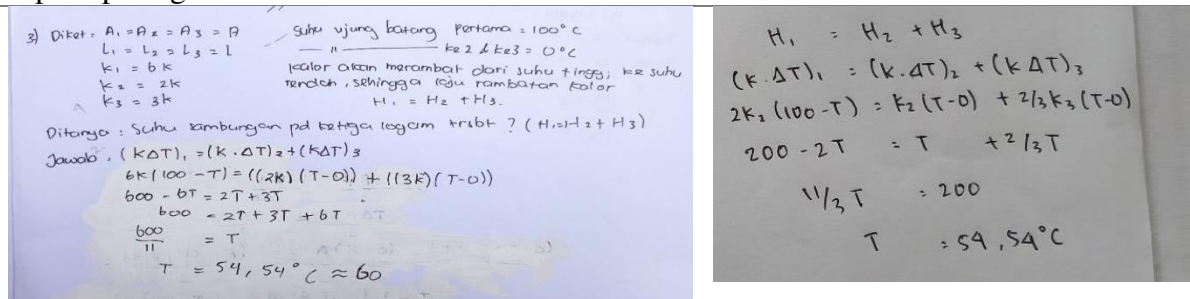 3) Diket : A₁ = A₂ = A₃ = A
L₁ = L₂ = L₃ = L
K₁ = 6K
K₂ = 2K
K₃ = 3K
Suhu ujung batang pertama = 100° C
— " — ke 2 & ke 3 = 0°C
kalor akan merambat dari suhu tinggi ke suhu
rendah, sehingga laju rambatan kalor
H₁ = H₂ + H₃.
Ditanya : Suhu sambungan pd ketiga logam trsbt ? (H₁=H₂ + H₃)
Jawab : (KΔT)₁ = (K . ΔT)₂ + (KΔT)₃
6K(100 - T) = ((2K) (T-0)) + ((3K)(T-0))
600 - 6T = 2T + 3T
600 = 2T + 3T + 6T
600/11 = T
T = 54,54° C ≈ 60
H₁ = H₂ + H₃
(K.ΔT)₁ = (K.ΔT)₂ + (K ΔT)₃
2K₂ (100 - T) = K₂ (T-0) + 2/3 K₃ (T-0)
200 - 2T = T + 2/3 T
11/3 T = 200
T = 54,54°C